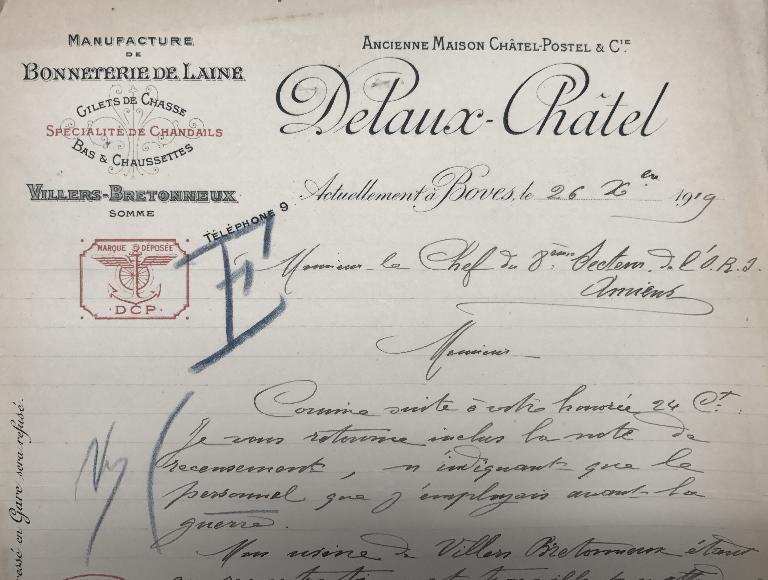 MANUFACTURE
DE
BONNETERIE DE LAINE
GILETS DE CHASSE
SPÉCIALITÉ DE CHANDAILS
BAS & CHAUSSETTES
VILLERS-BRETONNEUX
SOMME
TÉLÉPHONE 9
MARQUE DÉPOSÉE
DCP
ANCIENNE MAISON CHÂTEL-POSTEL & CIE
Delaux-Châtel
Actuellement à Boves, le 26 Xbre 1919
E
Monsieur le Chef du 8ème Secteur de l'O.R.I.
Amiens
Monsieur
Comme suite à votre honorée 24 Ct.
Je vous retourne inclus la note de
recensement, n'indiquant que le
personnel que j'employais avant la
guerre.
Mon usine de Villers Bretonneux étant
en Gare sera refusé.